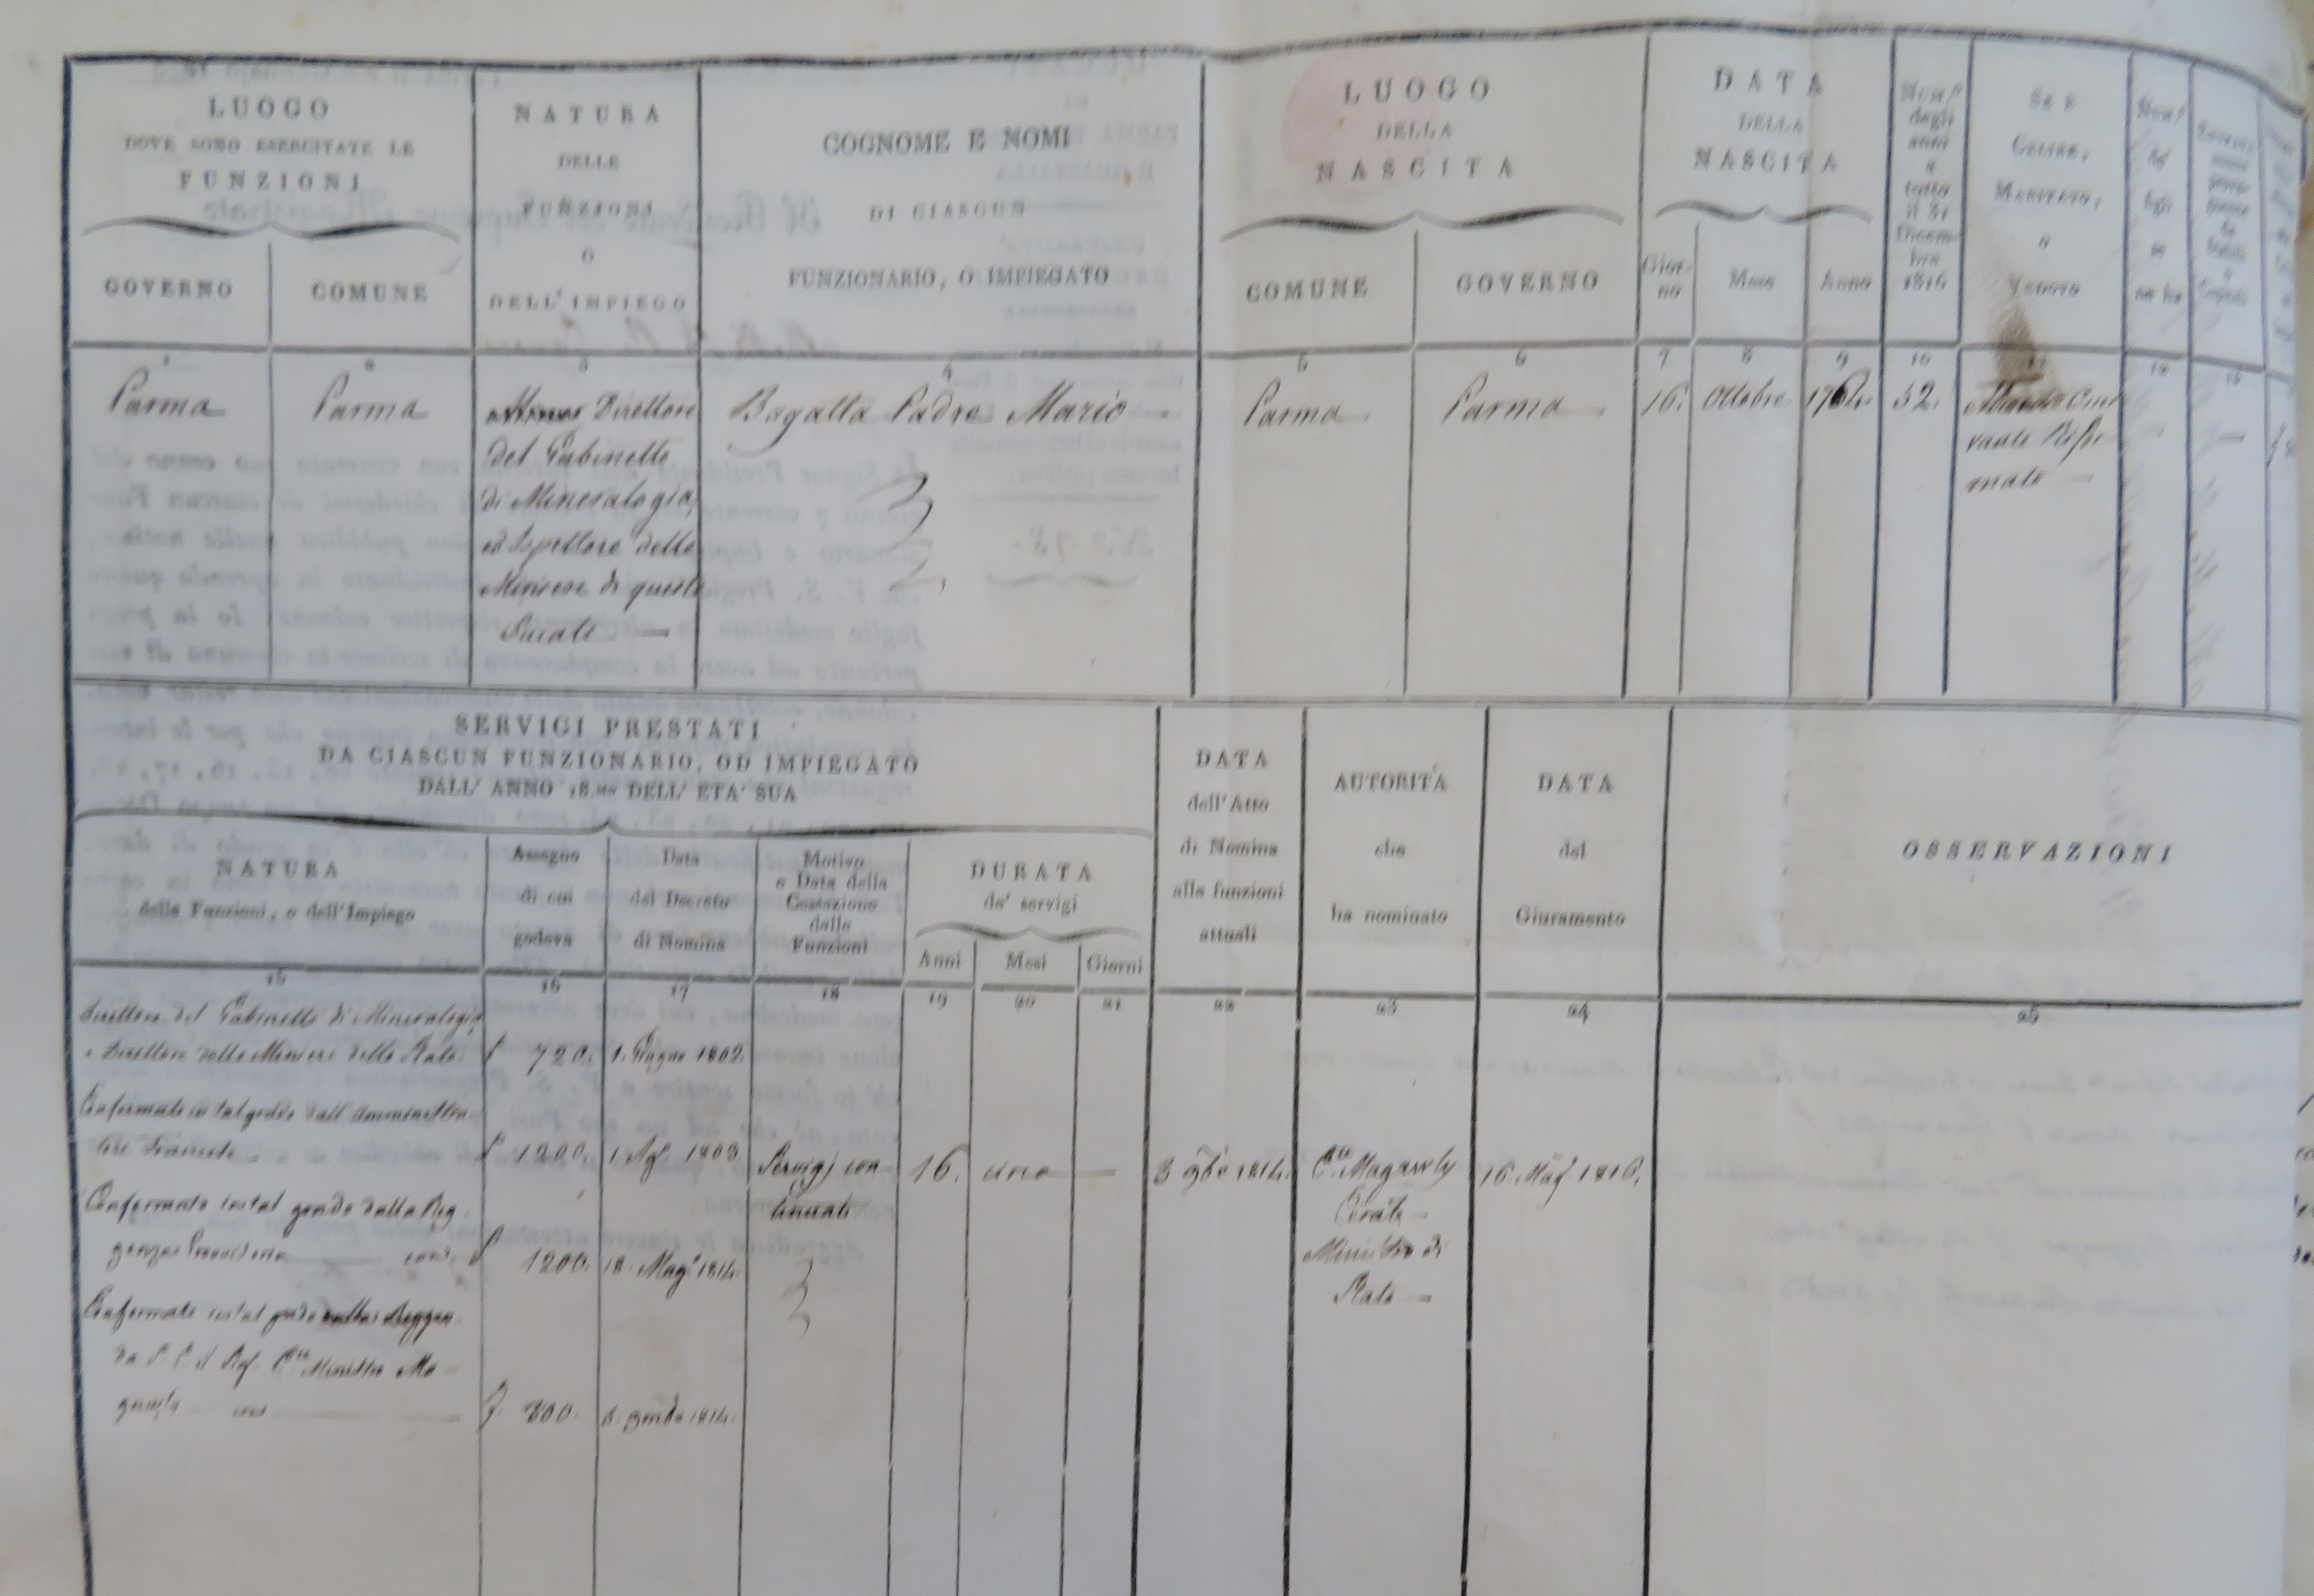 LUOGO
DOVE SONO ESERCITATE LE
FUNZIONI
GOVERNO
COMUNE
NATURA
DELLE
FUNZIONI
O
DELL'IMPIEGO
COGNOME E NOMI
DI CIASCUN
FUNZIONARIO, O IMPIEGATO
LUOGO
DELLA
NASCITA
COMUNE
GOVERNO
DATA
DELLA
NASCITA
Gior-
no
Mese
Anno
Num.º
degli
anni
a
tutto
il 31
Dicem-
bre
1816
Se è
Celibe,
Maritato,
o
Vedovo
Num.º
de'
figli
se
ne ha
1
2
3
4
5
6
7
8
9
10
11
12
13
Parma
Parma
Direttore
del Gabinetto
di Mineralogia,
ed Ispettore delle
Miniere di questi
Ducati —
Bagatta Padre Mario —
Parma
Parma
16.
Ottobre
1764
52.
Minore Osser
vante Refor-
mato —
—
—
SERVIGI PRESTATI
DA CIASCUN FUNZIONARIO, OD IMPIEGATO
DALL' ANNO 18.mo DELL' ETA' SUA
NATURA
delle Funzioni, o dell'Impiego
Assegno
di cui
godeva
Data
del Decreto
di Nomina
Motivo
e Data della
Cessazione
dalle
Funzioni
DURATA
de' servigi
Anni
Mesi
Giorni
DATA
dell'Atto
di Nomina
alle funzioni
attuali
AUTORITÀ
che
ha nominato
DATA
del
Giuramento
OSSERVAZIONI
15
16
17
18
19
20
21
22
23
24
25
Direttore del Gabinetto di Mineralogia,
e Direttore delle Miniere dello Stato.
720.
1. Giugno 1802.
Confermato in tal grado dall' Amministra-
tore Francese
1200.
1. Ag.º 1803.
Confermato in tal grado dalla Reg-
genza Provvisoria — con
1200.
18. Mag.º 1814.
Confermato in tal grado
Ministro Ma-
800.
1814.
Servigj con-
tinuati
16.
uno
—
3 9bre 1814.
C.te Magawly
Cerati —
Ministro di
Stato —
16. 1816.